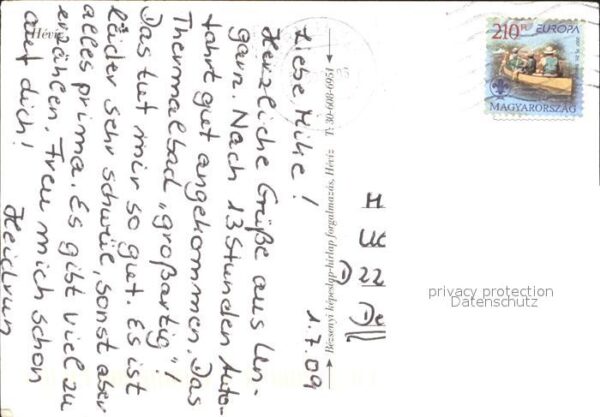 Hévíz
1.7.09
Liebe Mike!
Herzliche Grüße aus Un-
garn. Nach 13 Stunden Auto-
fahrt gut angekommen. Das
Thermalbad „großartig"!
Das tut mir so gut. Es ist
leider sehr schwül, sonst aber
alles prima. Es gibt viel zu
erzählen. Freu mich schon
auf dich!
Heidrun
Bézsenyi képeslap-hírlap forgalmazás, Hévíz T: 30-608-6951
210 Ft EUROPA
MAGYARORSZÁG
D 22
privacy protection
Datenschutz